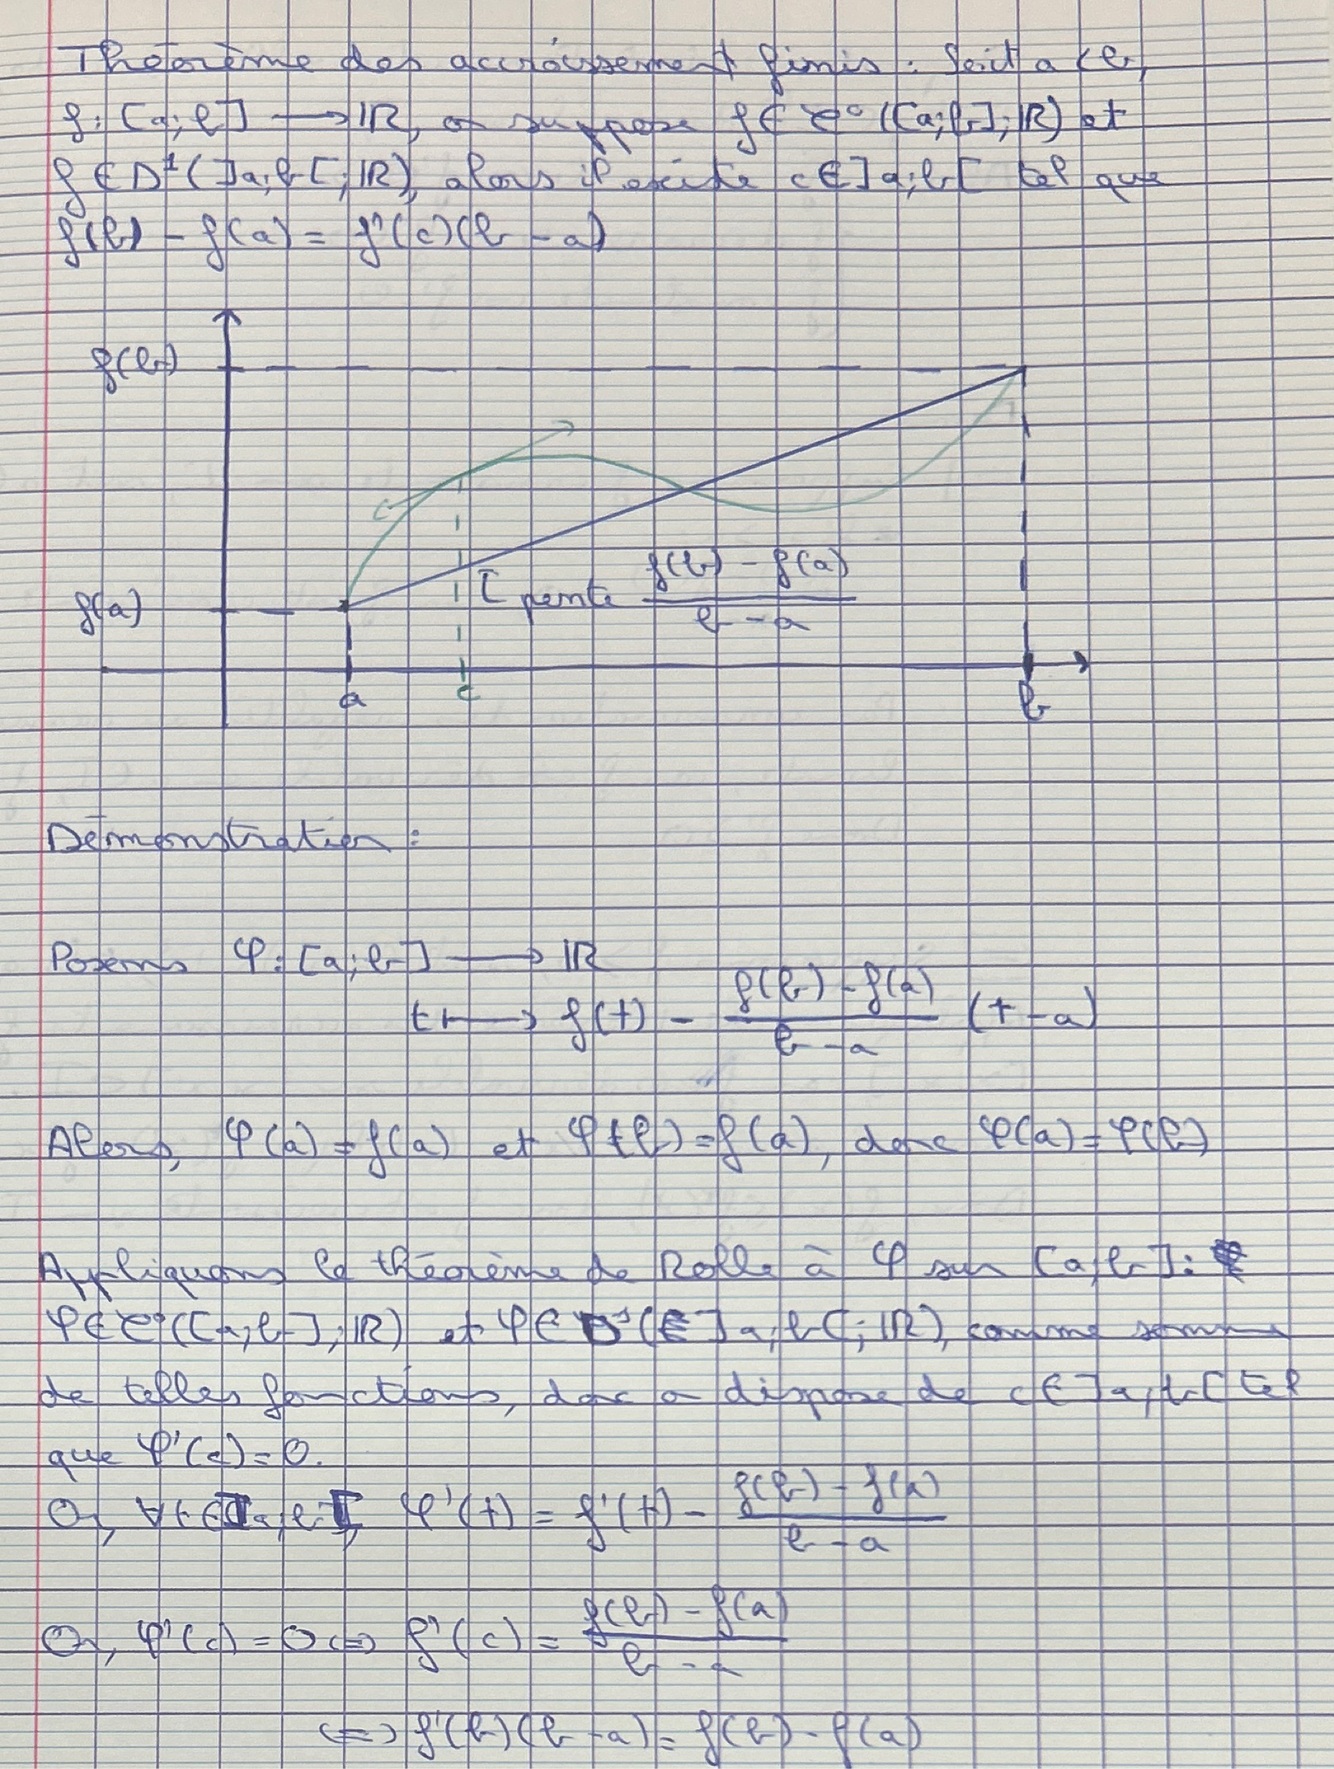 Théorème des accroissement finis : Soit a < b,
f : [a; b] → ℝ, on suppose f ∈ 𝒞⁰([a; b]; ℝ) et
f ∈ D¹(]a; b[; ℝ), alors il existe c ∈ ]a; b[ tel que
f(b) - f(a) = f'(c)(b - a)
f(b)
f(a)
pente (f(b) - f(a))/(b - a)
a c b
Démonstration :
Posons φ : [a; b] → ℝ
t ↦ f(t) - (f(b) - f(a))/(b - a) (t - a)
Alors, φ(a) = f(a) et φ(b) = f(a), donc φ(a) = φ(b)
Appliquons le théorème de Rolle à φ sur [a; b] :
φ ∈ 𝒞⁰([a; b]; ℝ) et φ ∈ D¹(]a; b[; ℝ), comme somme
de telles fonctions, donc on dispose de c ∈ ]a; b[ tel
que φ'(c) = 0.
Or, ∀t ∈ ]a; b[, φ'(t) = f'(t) - (f(b) - f(a))/(b - a)
Or, φ'(c) = 0 ⇔ f'(c) = (f(b) - f(a))/(b - a)
⇔ f'(b)(b - a) = f(b) - f(a)